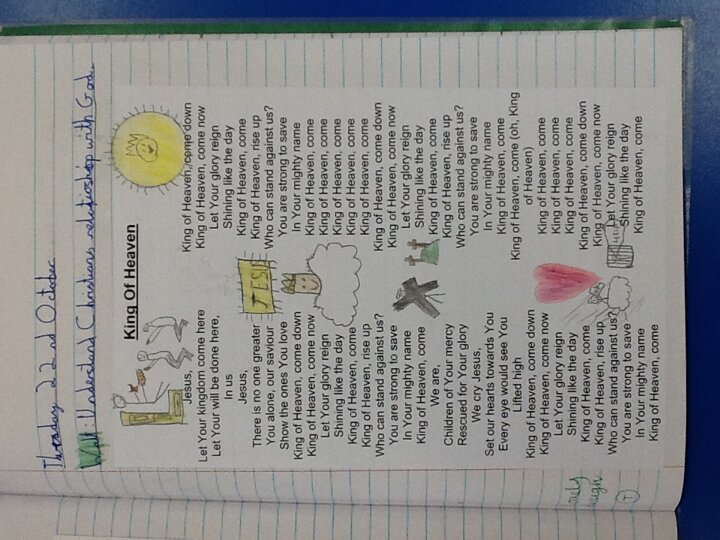 Thursday 22nd October
Walt: Understand Christians relationship with God.
King Of Heaven
Jesus,
Let Your kingdom come here
Let Your will be done here,
In us
Jesus,
There is no one greater
You alone, our saviour
Show the ones You love
King of Heaven, come down
King of Heaven, come now
Let Your glory reign
Shining like the day
King of Heaven, come
King of Heaven, rise up
Who can stand against us?
You are strong to save
In Your mighty name
King of Heaven, come
We are,
Children of Your mercy
Rescued for Your glory
We cry Jesus,
Set our hearts towards You
Every eye would see You
Lifted high
King of Heaven, come down
King of Heaven, come now
Let Your glory reign
Shining like the day
King of Heaven, come
King of Heaven, rise up
Who can stand against us?
You are strong to save
In Your mighty name
King of Heaven, come
King of Heaven, come down
King of Heaven, come now
Let Your glory reign
Shining like the day
King of Heaven, come
King of Heaven, rise up
Who can stand against us?
You are strong to save
In Your mighty name
King of Heaven, come
King of Heaven, come
King of Heaven, come
King of Heaven, come
King of Heaven, come
King of Heaven, come down
King of Heaven, come now
Let Your glory reign
Shining like the day
King of Heaven, come
King of Heaven, rise up
Who can stand against us?
You are strong to save
In Your mighty name
King of Heaven, come
King of Heaven, come (oh, King
of Heaven)
King of Heaven, come
King of Heaven, come
King of Heaven, come
King of Heaven, come down
King of Heaven, come now
Let Your glory reign
Shining like the day
King of Heaven, come
JESUS